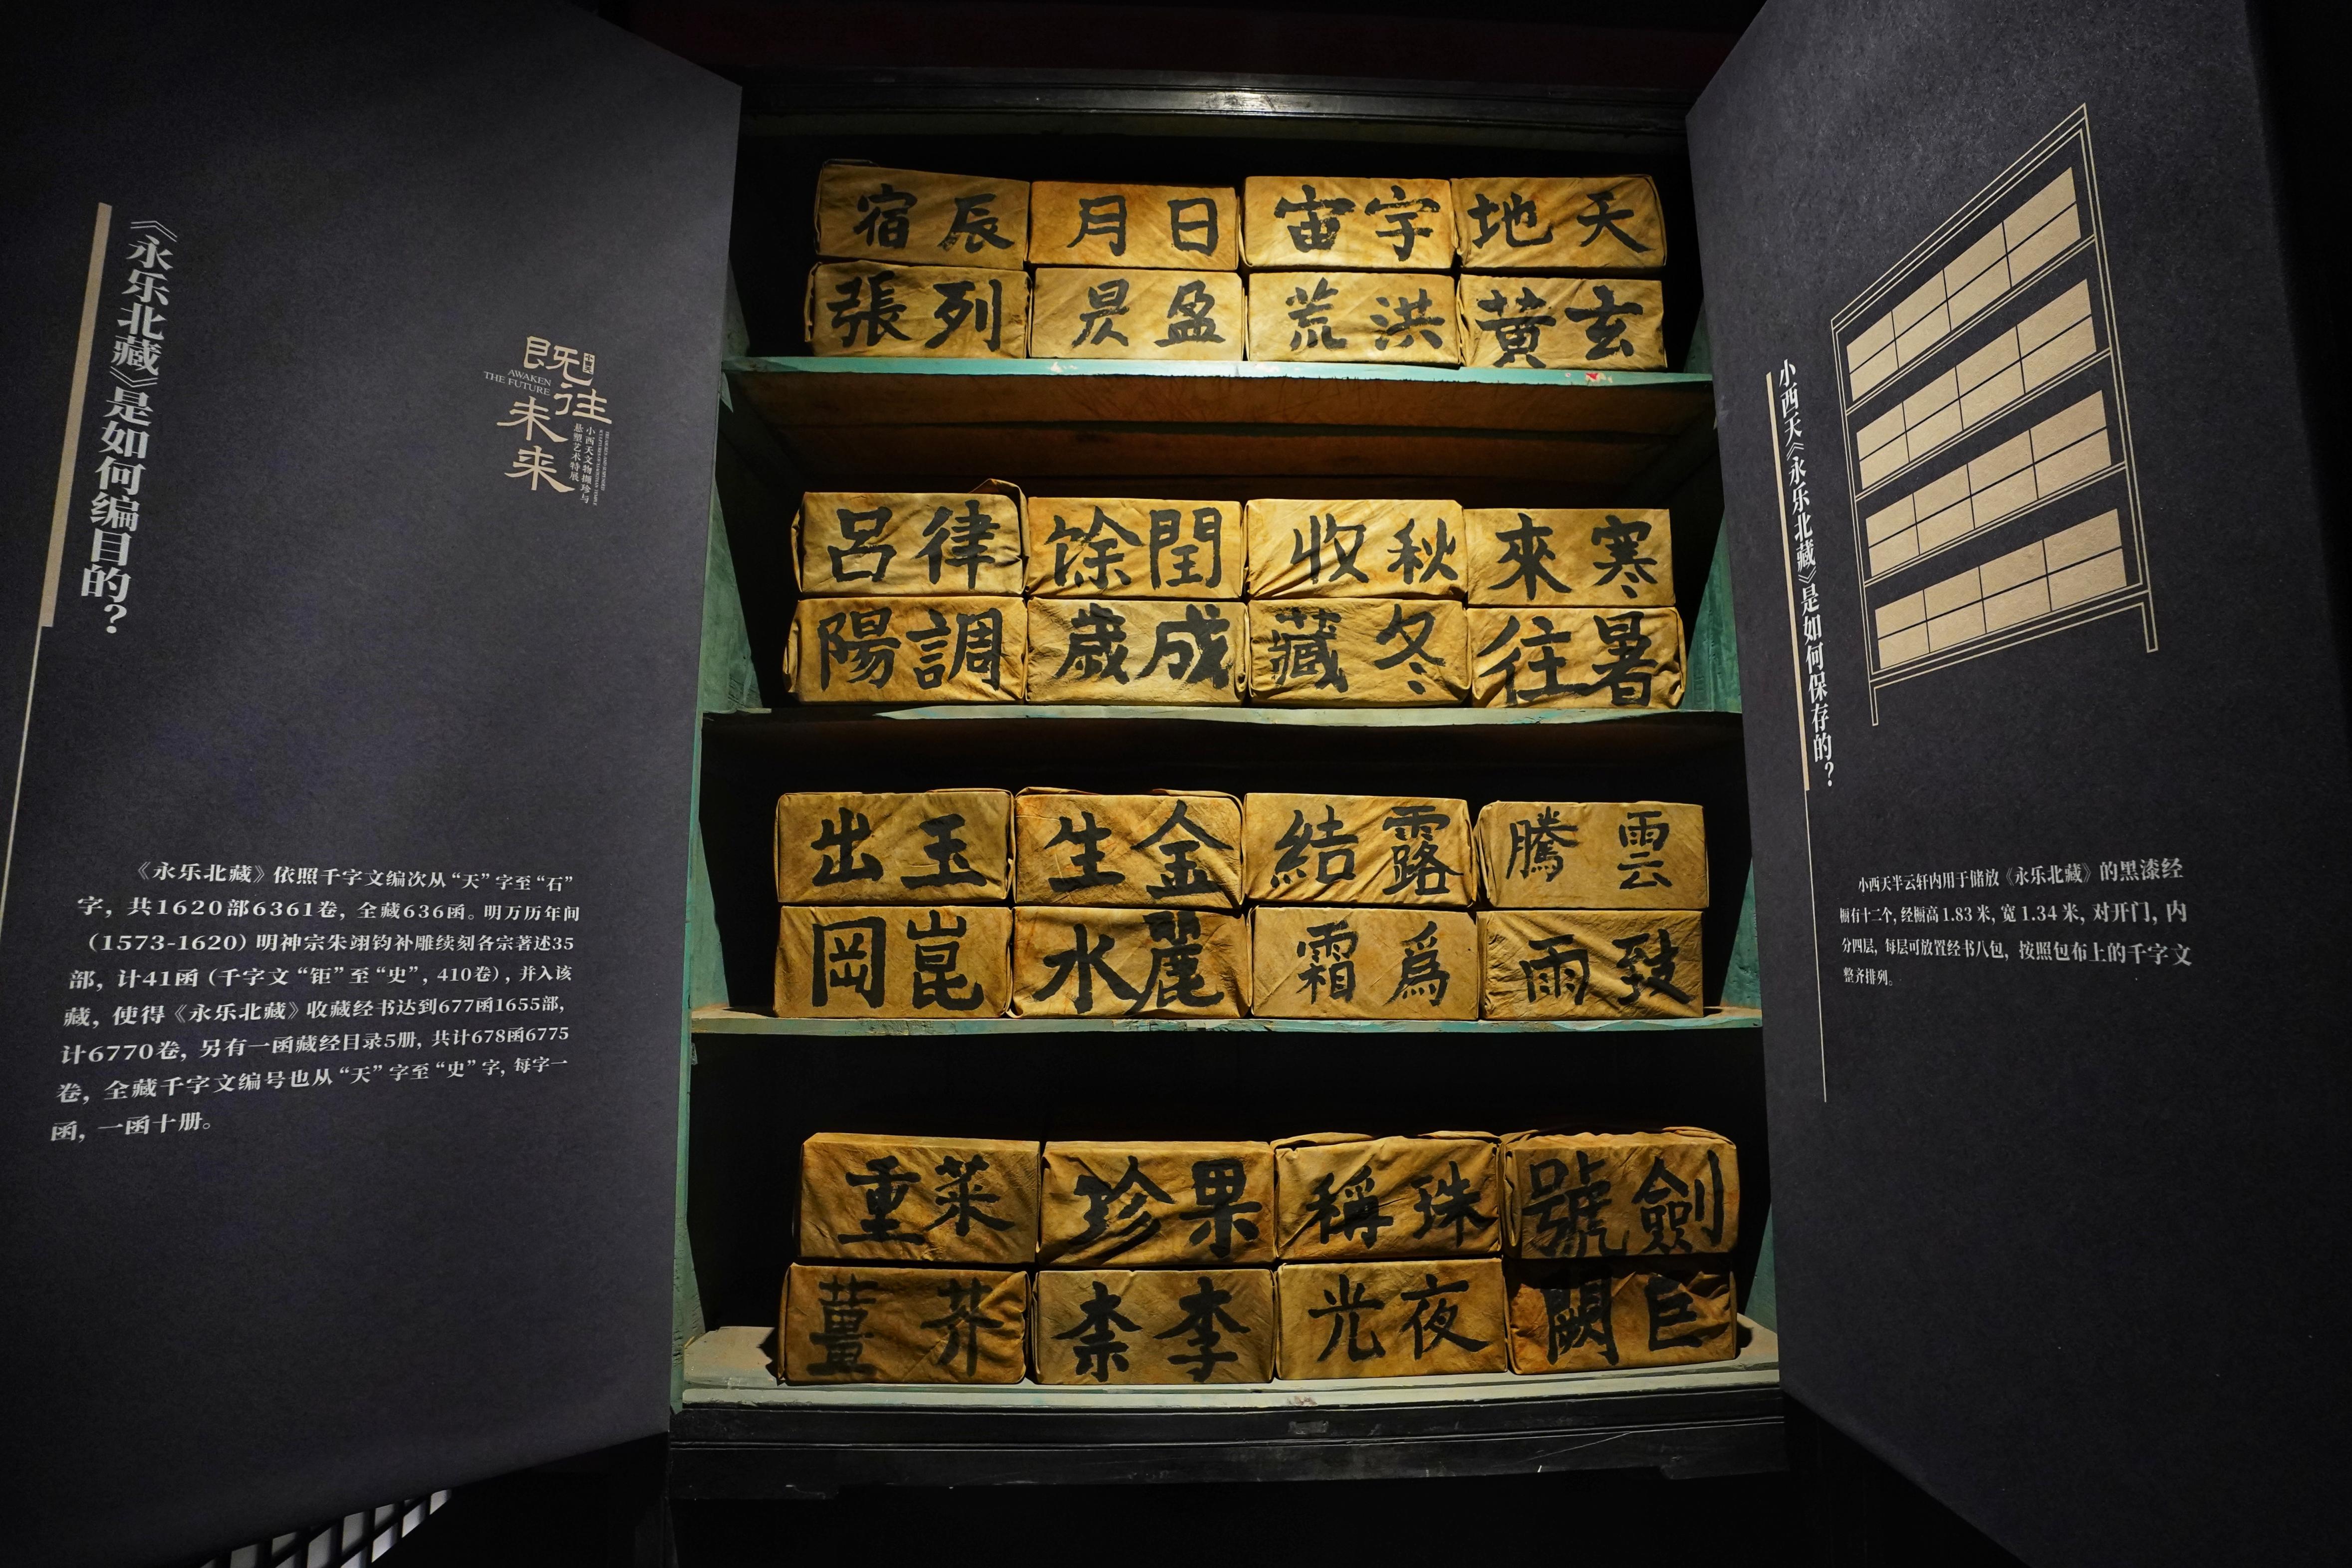 《永乐北藏》是如何编目的？
既往
未来
AWAKEN
THE FUTURE
小西天文物撷珍与
悬塑艺术特展
《永乐北藏》依照千字文编次从“天”字至“石”
字，共1620部6361卷，全藏636函。明万历年间
（1573-1620）明神宗朱翊钧补雕续刻各宗著述35
部，计41函（千字文“钜”至“史”，410卷），并入该
藏，使得《永乐北藏》收藏经书达到677函1655部，
计6770卷，另有一函藏经目录5册，共计678函6775
卷，全藏千字文编号也从“天”字至“史”字，每字一
函，一函十册。
天地
宇宙
日月
辰宿
玄黃
洪荒
盈昃
列張
寒來
秋收
閏馀
律呂
暑往
冬藏
成歲
調陽
雲騰
露結
金生
玉出
致雨
爲霜
麗水
崑岡
劍號
珠稱
果珍
菜重
巨闕
夜光
李柰
芥薑
小西天《永乐北藏》是如何保存的？
小西天半云轩内用于储放《永乐北藏》的黑漆经
橱有十二个，经橱高1.83米，宽1.34米，对开门，内
分四层，每层可放置经书八包，按照包布上的千字文
整齐排列。